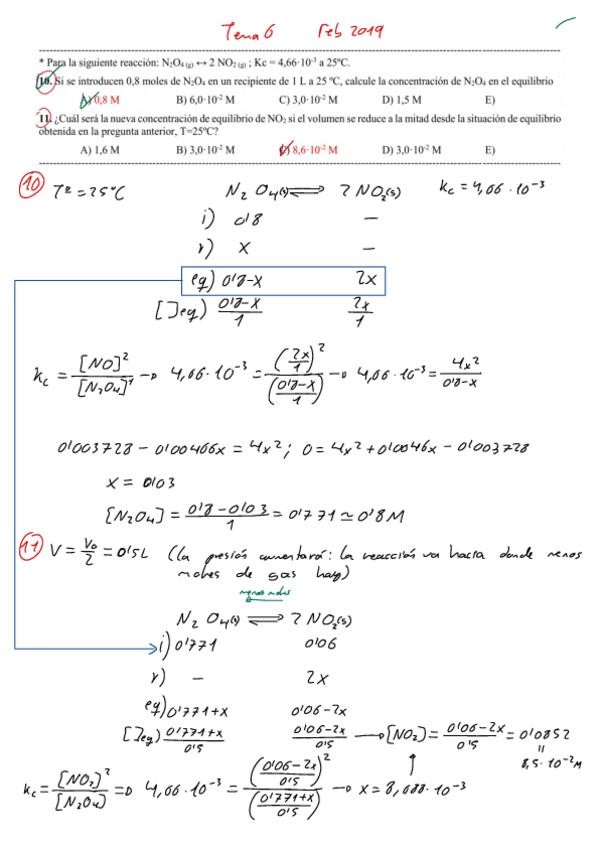 Tema 6 Feb 2019
* Para la siguiente reacción: N₂O₄ (g) ↔ 2 NO₂ (g) ; Kc = 4,66·10⁻³ a 25ºC.
10. Si se introducen 0,8 moles de N₂O₄ en un recipiente de 1 L a 25 ºC, calcule la concentración de N₂O₄ en el equilibrio
A) 0,8 M B) 6,0·10⁻² M C) 3,0·10⁻² M D) 1,5 M E)
11. ¿Cuál será la nueva concentración de equilibrio de NO₂ si el volumen se reduce a la mitad desde la situación de equilibrio
obtenida en la pregunta anterior, T=25ºC?
A) 1,6 M B) 3,0·10⁻² M C) 8,6·10⁻² M D) 3,0·10⁻² M E)
10 Tª = 25ºC N₂O₄(g) ⇌ 2NO₂(g) Kc = 4,66·10⁻³
i) 0'8 –
r) x –
eq) 0'8-x 2x
[]eq) (0'8-x)/1 2x/1
Kc = [NO]²/[N₂O₄]¹ → 4,66·10⁻³ = (2x/1)²/((0'8-x)/1) → 4,66·10⁻³ = 4x²/(0'8-x)
0'003728 - 0'00466x = 4x²; 0 = 4x² + 0'0046x - 0'003728
x = 0'03
[N₂O₄] = (0'8-0'03)/1 = 0'771 ≃ 0'8M
11 V = V₀/2 = 0'5L (la presión aumentará: la reacción va hacia donde menos
moles de gas hay)
menos moles
N₂O₄(g) ⇌ 2NO₂(g)
i) 0'771 0'06
r) – 2x
eq) 0'771+x 0'06-2x
[]eq) (0'771+x)/0'5 (0'06-2x)/0'5 → [NO₂] = (0'06-2x)/0'5 = 0'0852
= 8,5·10⁻² M
Kc = [NO₂]²/[N₂O₄] ⇒ 4,66·10⁻³ = ((0'06-2x)/0'5)²/((0'771+x)/0'5) → x = 8,688·10⁻³